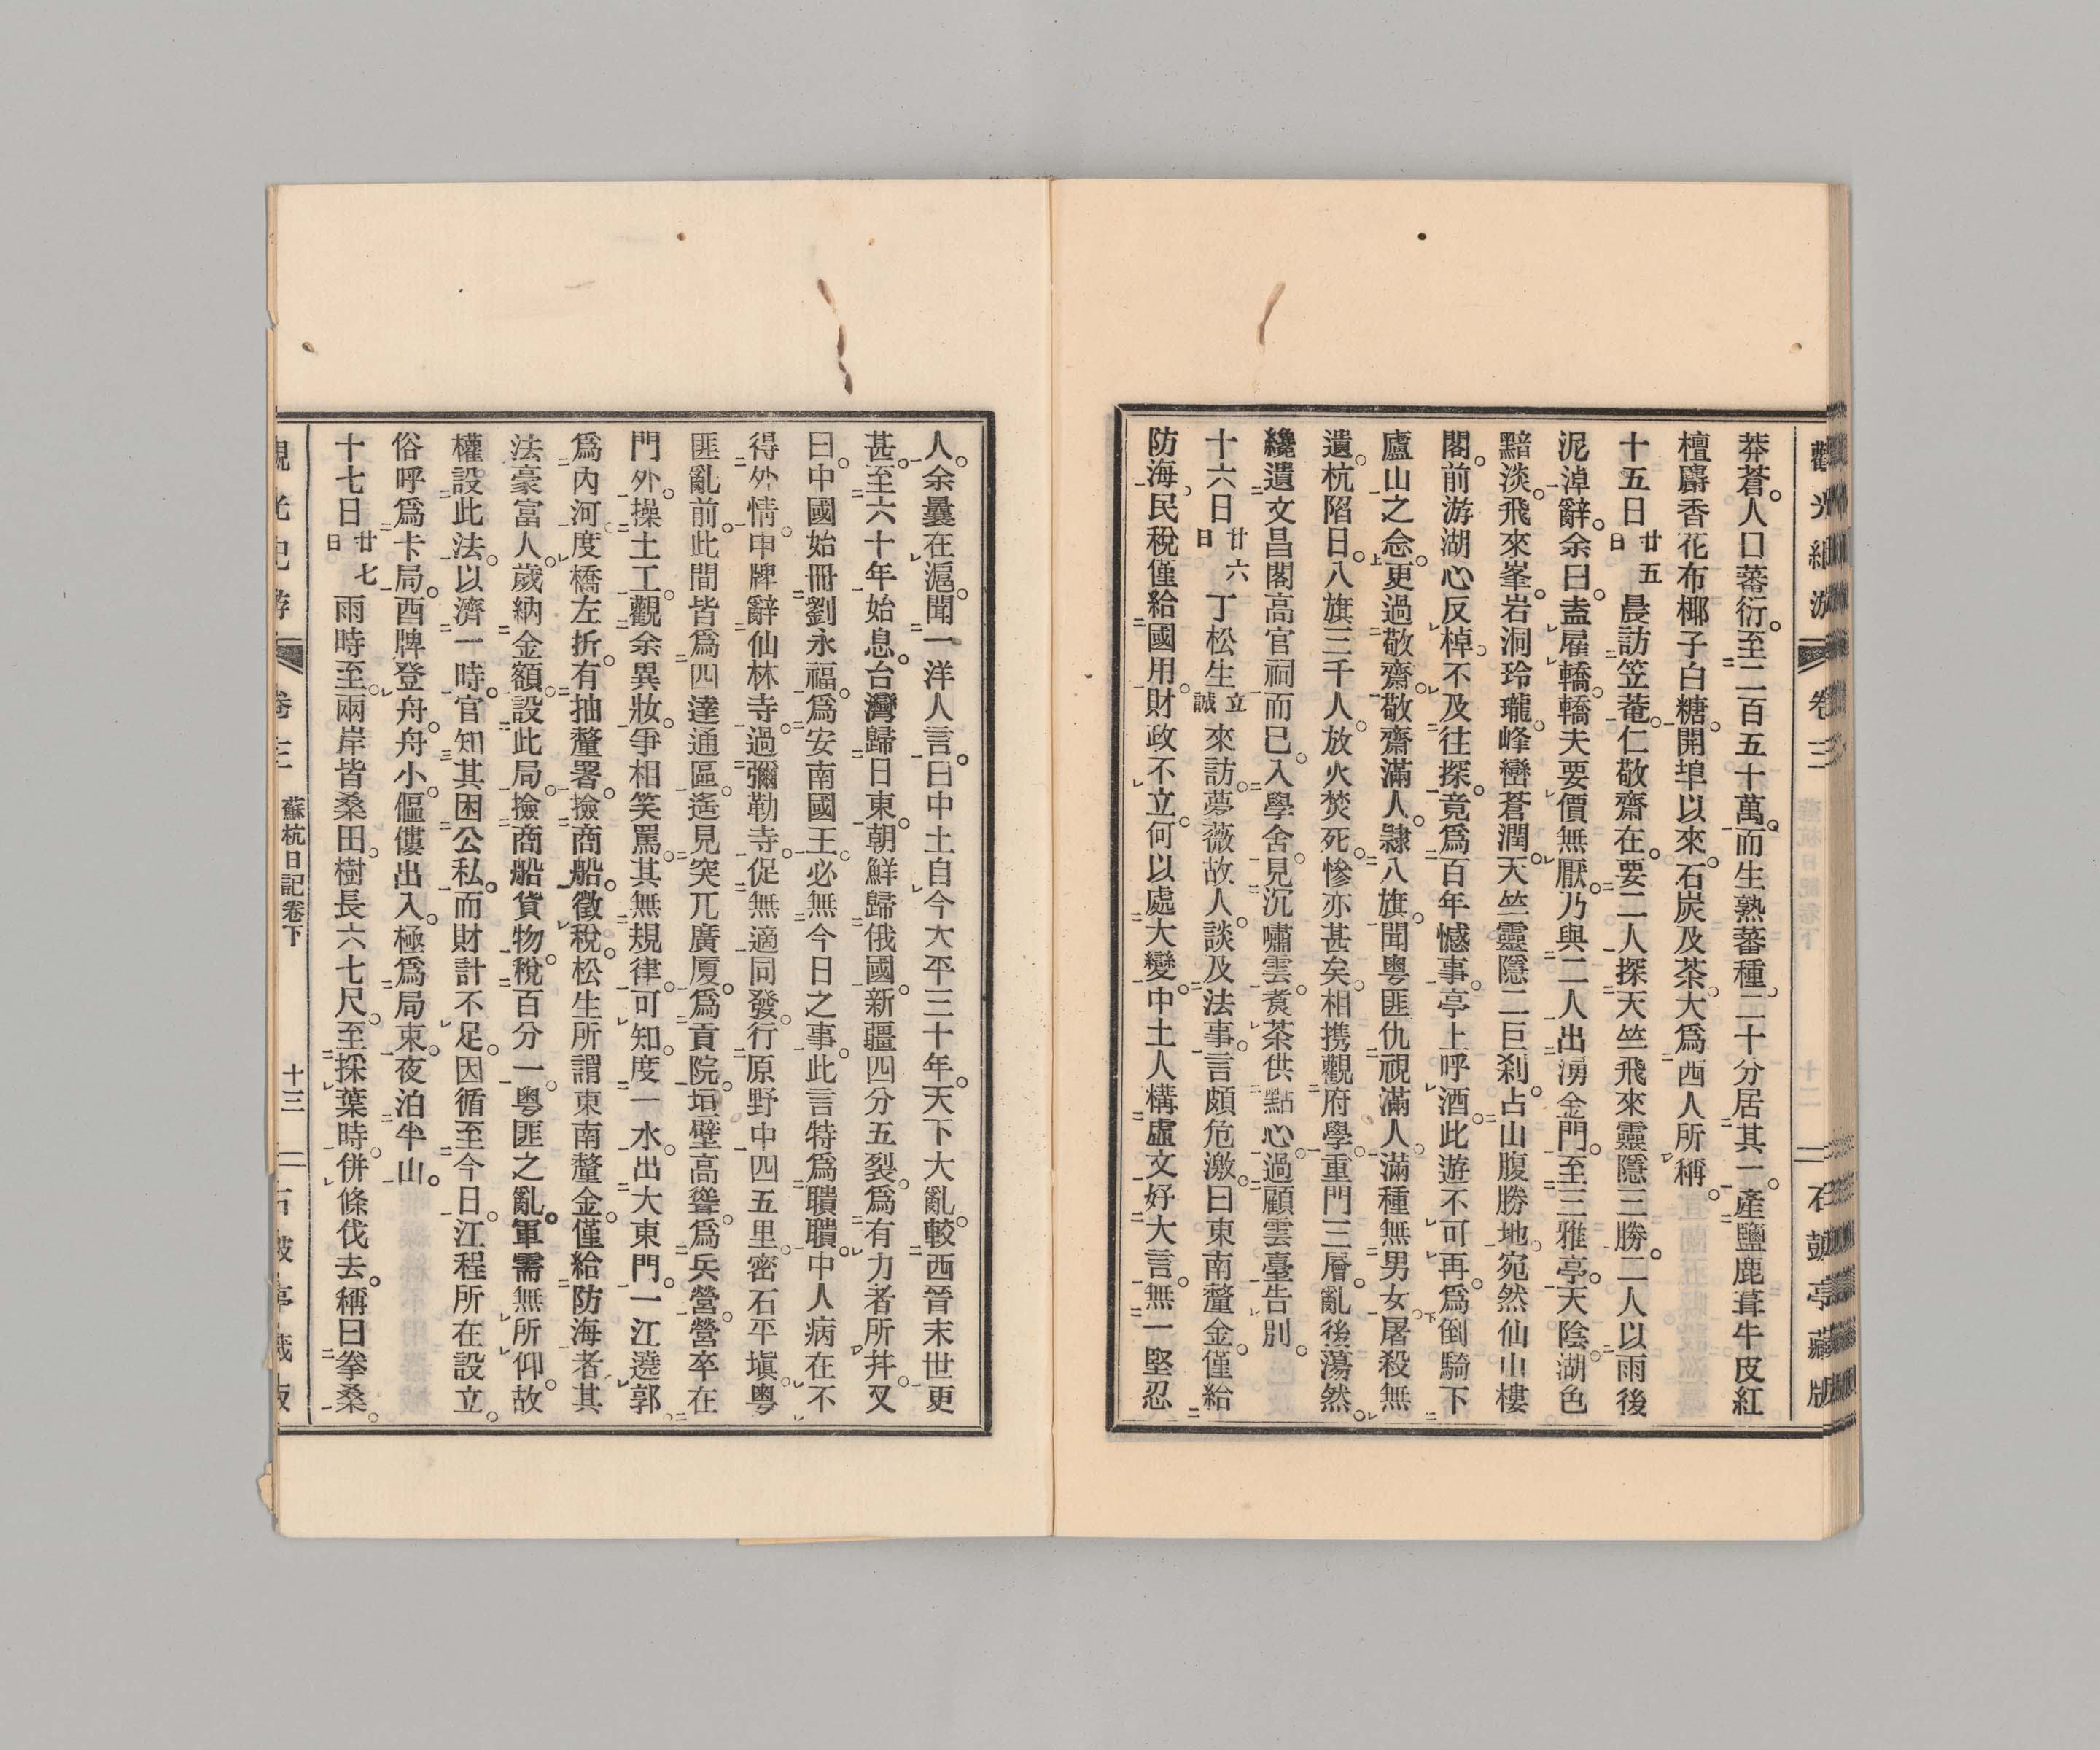 觀光紀游 卷三 石鼓亭藏版
莽蒼。人口蕃衍。至二百五十萬。而生熟蕃種。二十分居其一。產鹽鹿葺牛皮紅
檀麝香花布椰子白糖。開埠以來。石炭及茶。大爲西人所稱。
十五日廿五日晨訪笠菴。仁敬齋在。要二人探天竺飛來靈隱三勝。二人以雨後
泥淖辭。余曰。盍雇轎。轎夫要價無厭。乃與二人出湧金門。至三雅亭。天陰。湖色
黯淡。飛來峯。岩洞玲瓏。峰巒蒼潤。天竺靈隱二巨刹。占山腹勝地。宛然仙山樓
閣。前游湖心反棹。不及往探。竟爲百年憾事。亭上呼酒。此遊不可再。爲倒騎下
廬山之念。更過敬齋。敬齋滿人。隷八旗。聞粵匪仇視滿人。滿種無男女。屠殺無
遺。杭陷日。八旗三千人。放火焚死。慘亦甚矣。相携觀府學。重門三層。亂後蕩然。
纔遺文昌閣高官祠而已。入學舍。見沉嘯雲。煑茶供點心。過顧雲臺告別。
十六日廿六日丁松生立誠來訪。夢薇故人。談及法事。言頗危激。曰東南釐金。僅給
防海。民稅僅給國用。財政不立。何以處大變。中土人構虛文好大言。無一堅忍
人。余曩在滬。聞一洋人言。曰中土自今大平三十年。天下大亂。較西晉末世更
甚。至六十年始息。台灣歸日東。朝鮮歸俄國。新疆四分五裂。爲有力者所并。又
曰。中國始冊劉永福。爲安南國王。必無今日之事。此言特爲聵聵。中人病在不
得外情。申牌辭仙林寺。過彌勒寺。促無適同發。行原野中四五里。密石平塡。粵
匪亂前。此間皆爲四達通區。遙見突兀廣厦。爲貢院。垣壁高聳。爲兵營。營卒在
門外。操土工。觀余異妝。爭相笑罵。其無規律。可知。度一水。出大東門。一江遶郭
爲內河。度橋左折。有抽釐署。撿商船。徵稅。松生所謂東南釐金。僅給防海者。其
法豪富人。歲納金額。設此局。撿商船貨物。稅百分一。粵匪之亂。軍需無所仰。故
權設此法。以濟一時。官知其困公私。而財計不足。因循至今日。江程所在設立。
俗呼爲卡局。酉牌登舟。舟小。傴僂出入。極爲局束。夜泊半山。
十七日廿七日雨時至。兩岸皆桑田。樹長六七尺。至採葉時。併條伐去。稱曰拳桑。
蘇杭日記卷下 十三